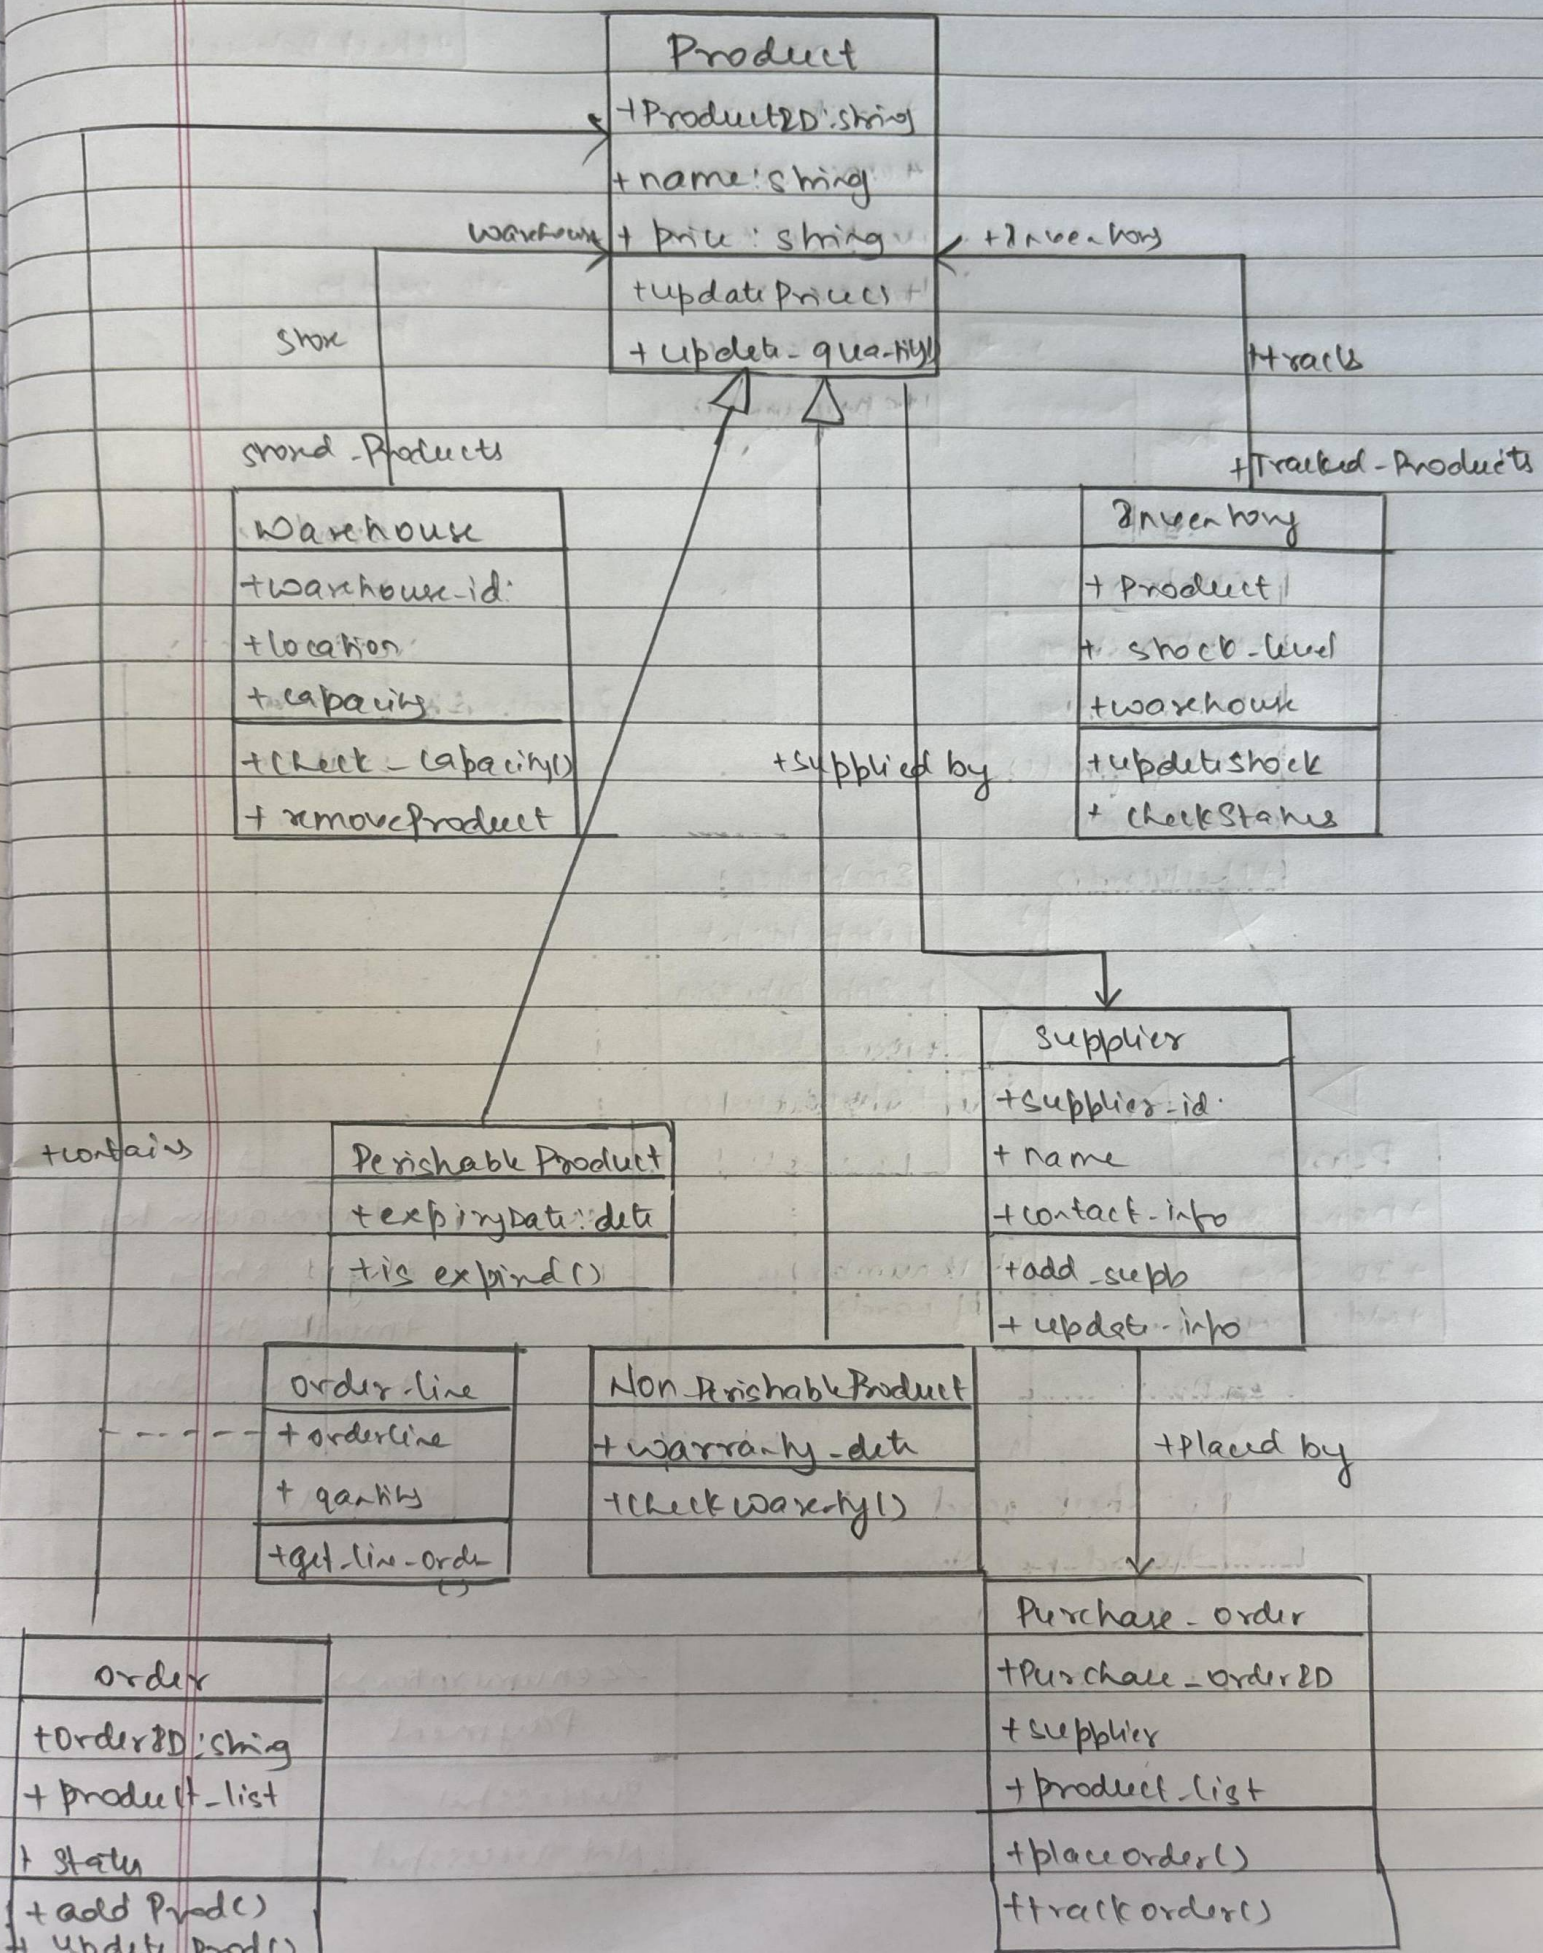 Product
+ProductID:string
+ name:string
+ price : string
+updatePrice()
+ update_quantity()
warehouse
+Inventory
store
+tracks
stored_Products
+Tracked_Products
Warehouse
+warehouse_id:
+location
+capacity
+check_capacity()
+ removeProduct
Inventory
+ Product
+ stock_level
+warehouse
+updatestock
+ checkStatus
+supplied by
Supplier
+supplier_id.
+ name
+contact_info
+add_supp
+ update_info
+contains
PerishableProduct
+expiryDate::date
+is expired()
order_line
+orderline
+ qantity
+get_line_order
()
Non_PerishableProduct
+warranty_date
+checkwarenty()
+placed by
Purchase_order
+Purchase_orderID
+supplier
+product_list
+placeorder()
+trackorder()
order
+OrderID:string
+ product_list
+ status
+ add Prod()
+ update Prod()